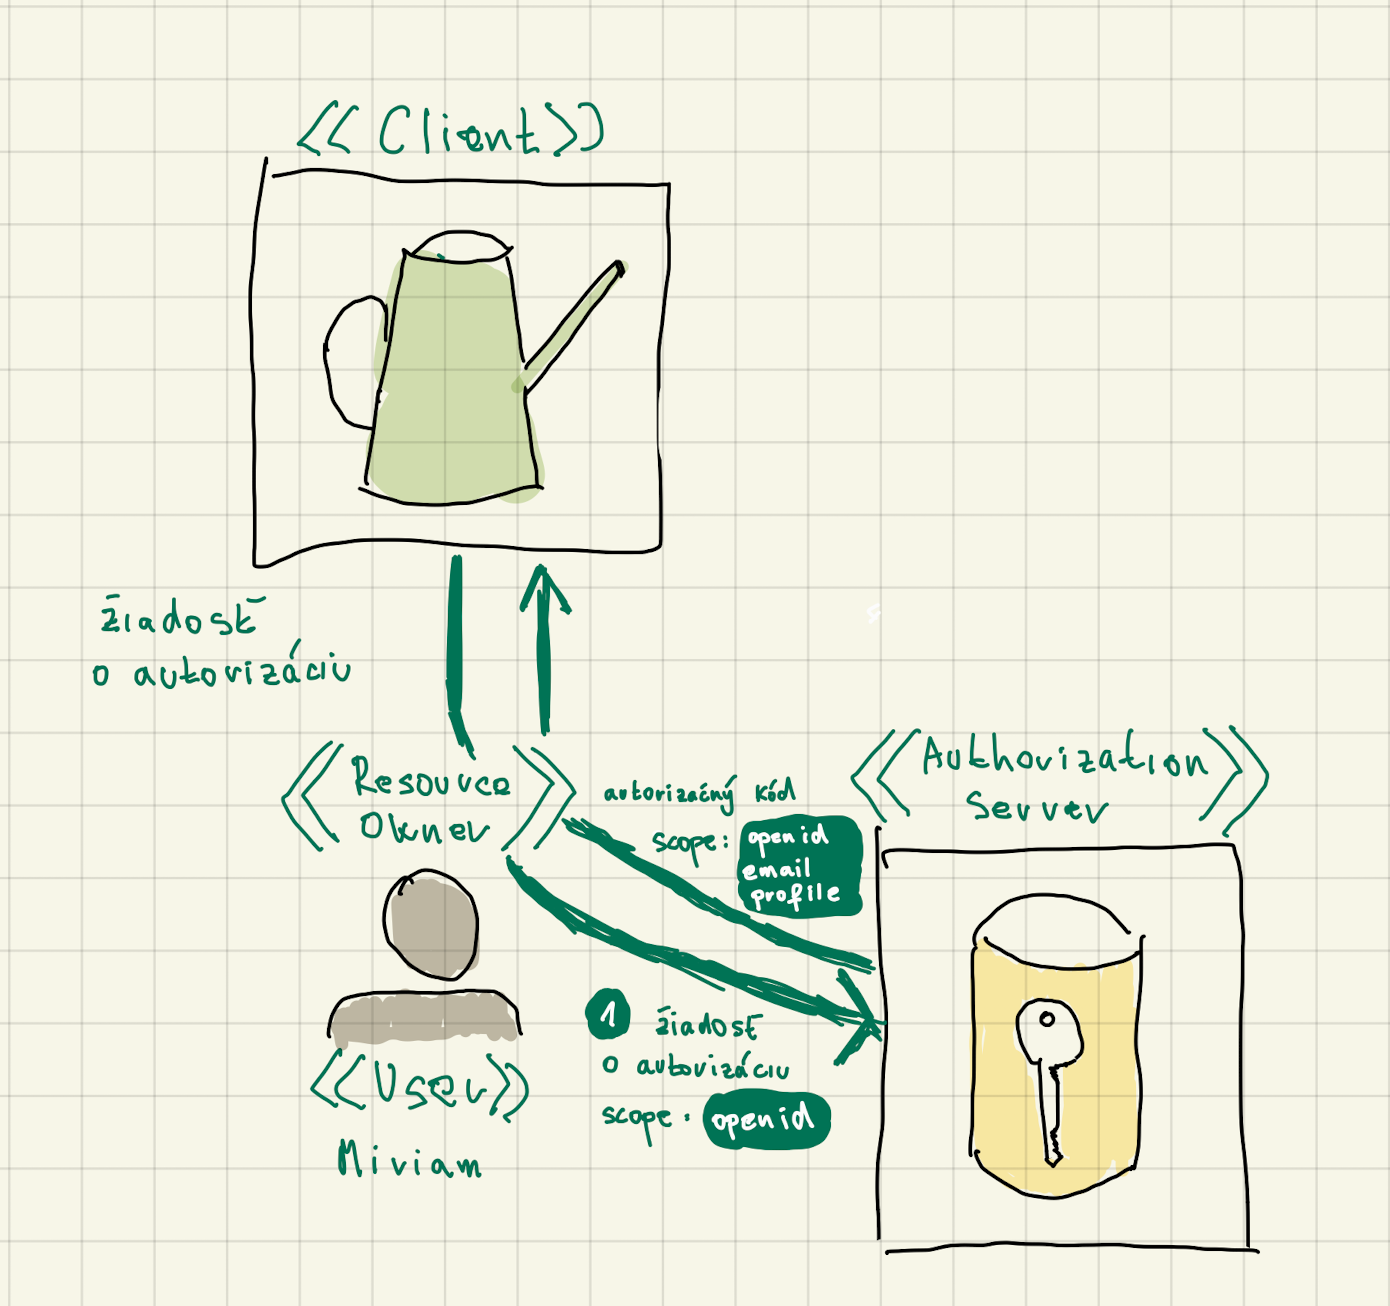 <<Client>>
žiadosť
o autorizáciu
<<Resource
Owner>>
autorizačný kód
scope: openid
email
profile
<<Authorization
Server>>
1 žiadosť
o autorizáciu
scope: openid
<<User>>
Miriam